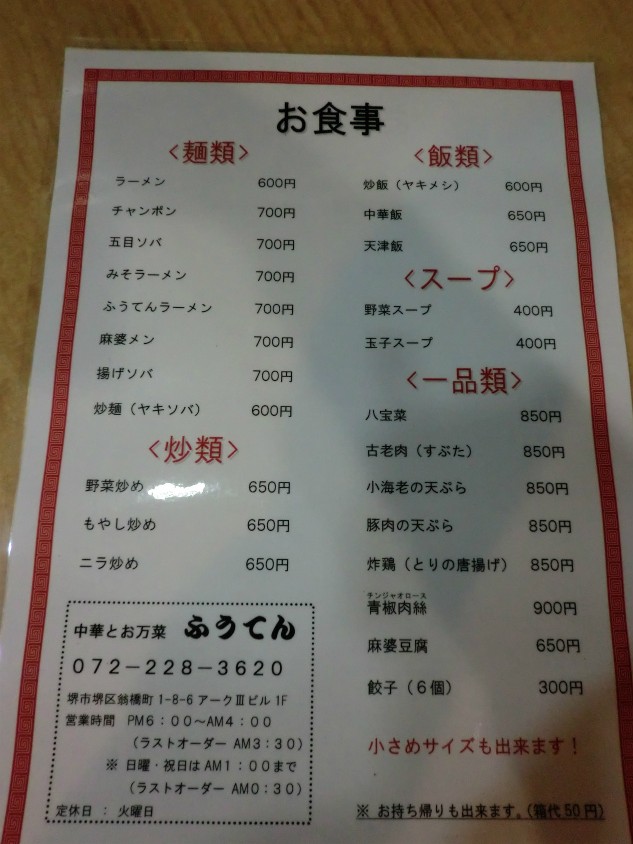 お食事
<麺類>
ラーメン 600円
チャンポン 700円
五目ソバ 700円
みそラーメン 700円
ふうてんラーメン 700円
麻婆メン 700円
揚げソバ 700円
炒麺（ヤキソバ） 600円
<炒類>
野菜炒め 650円
もやし炒め 650円
ニラ炒め 650円
中華とお万菜 ふうてん
072－228－3620
堺市堺区翁橋町1-8-6アークⅢビル1F
営業時間 PM6：00～AM4：00
（ラストオーダー AM3：30）
※ 日曜・祝日はAM1：00まで
（ラストオーダー AM0：30）
定休日 ： 火曜日
<飯類>
炒飯（ヤキメシ） 600円
中華飯 650円
天津飯 650円
<スープ>
野菜スープ 400円
玉子スープ 400円
<一品類>
八宝菜 850円
古老肉（すぶた） 850円
小海老の天ぷら 850円
豚肉の天ぷら 850円
炸鶏（とりの唐揚げ） 850円
チンジャオロース
青椒肉絲 900円
麻婆豆腐 650円
餃子（6個） 300円
小さめサイズも出来ます！
※ お持ち帰りも出来ます。（箱代50円）